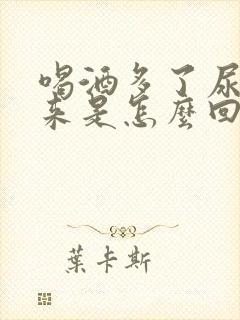 喝酒多了尿
来是怎麼回
葉卡斯